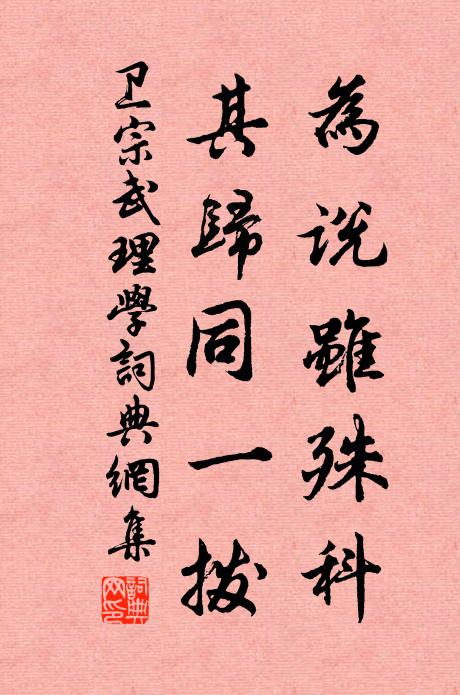 為説雖殊科
其歸同一撥
卫宗武理學詞典網集
詞典网印